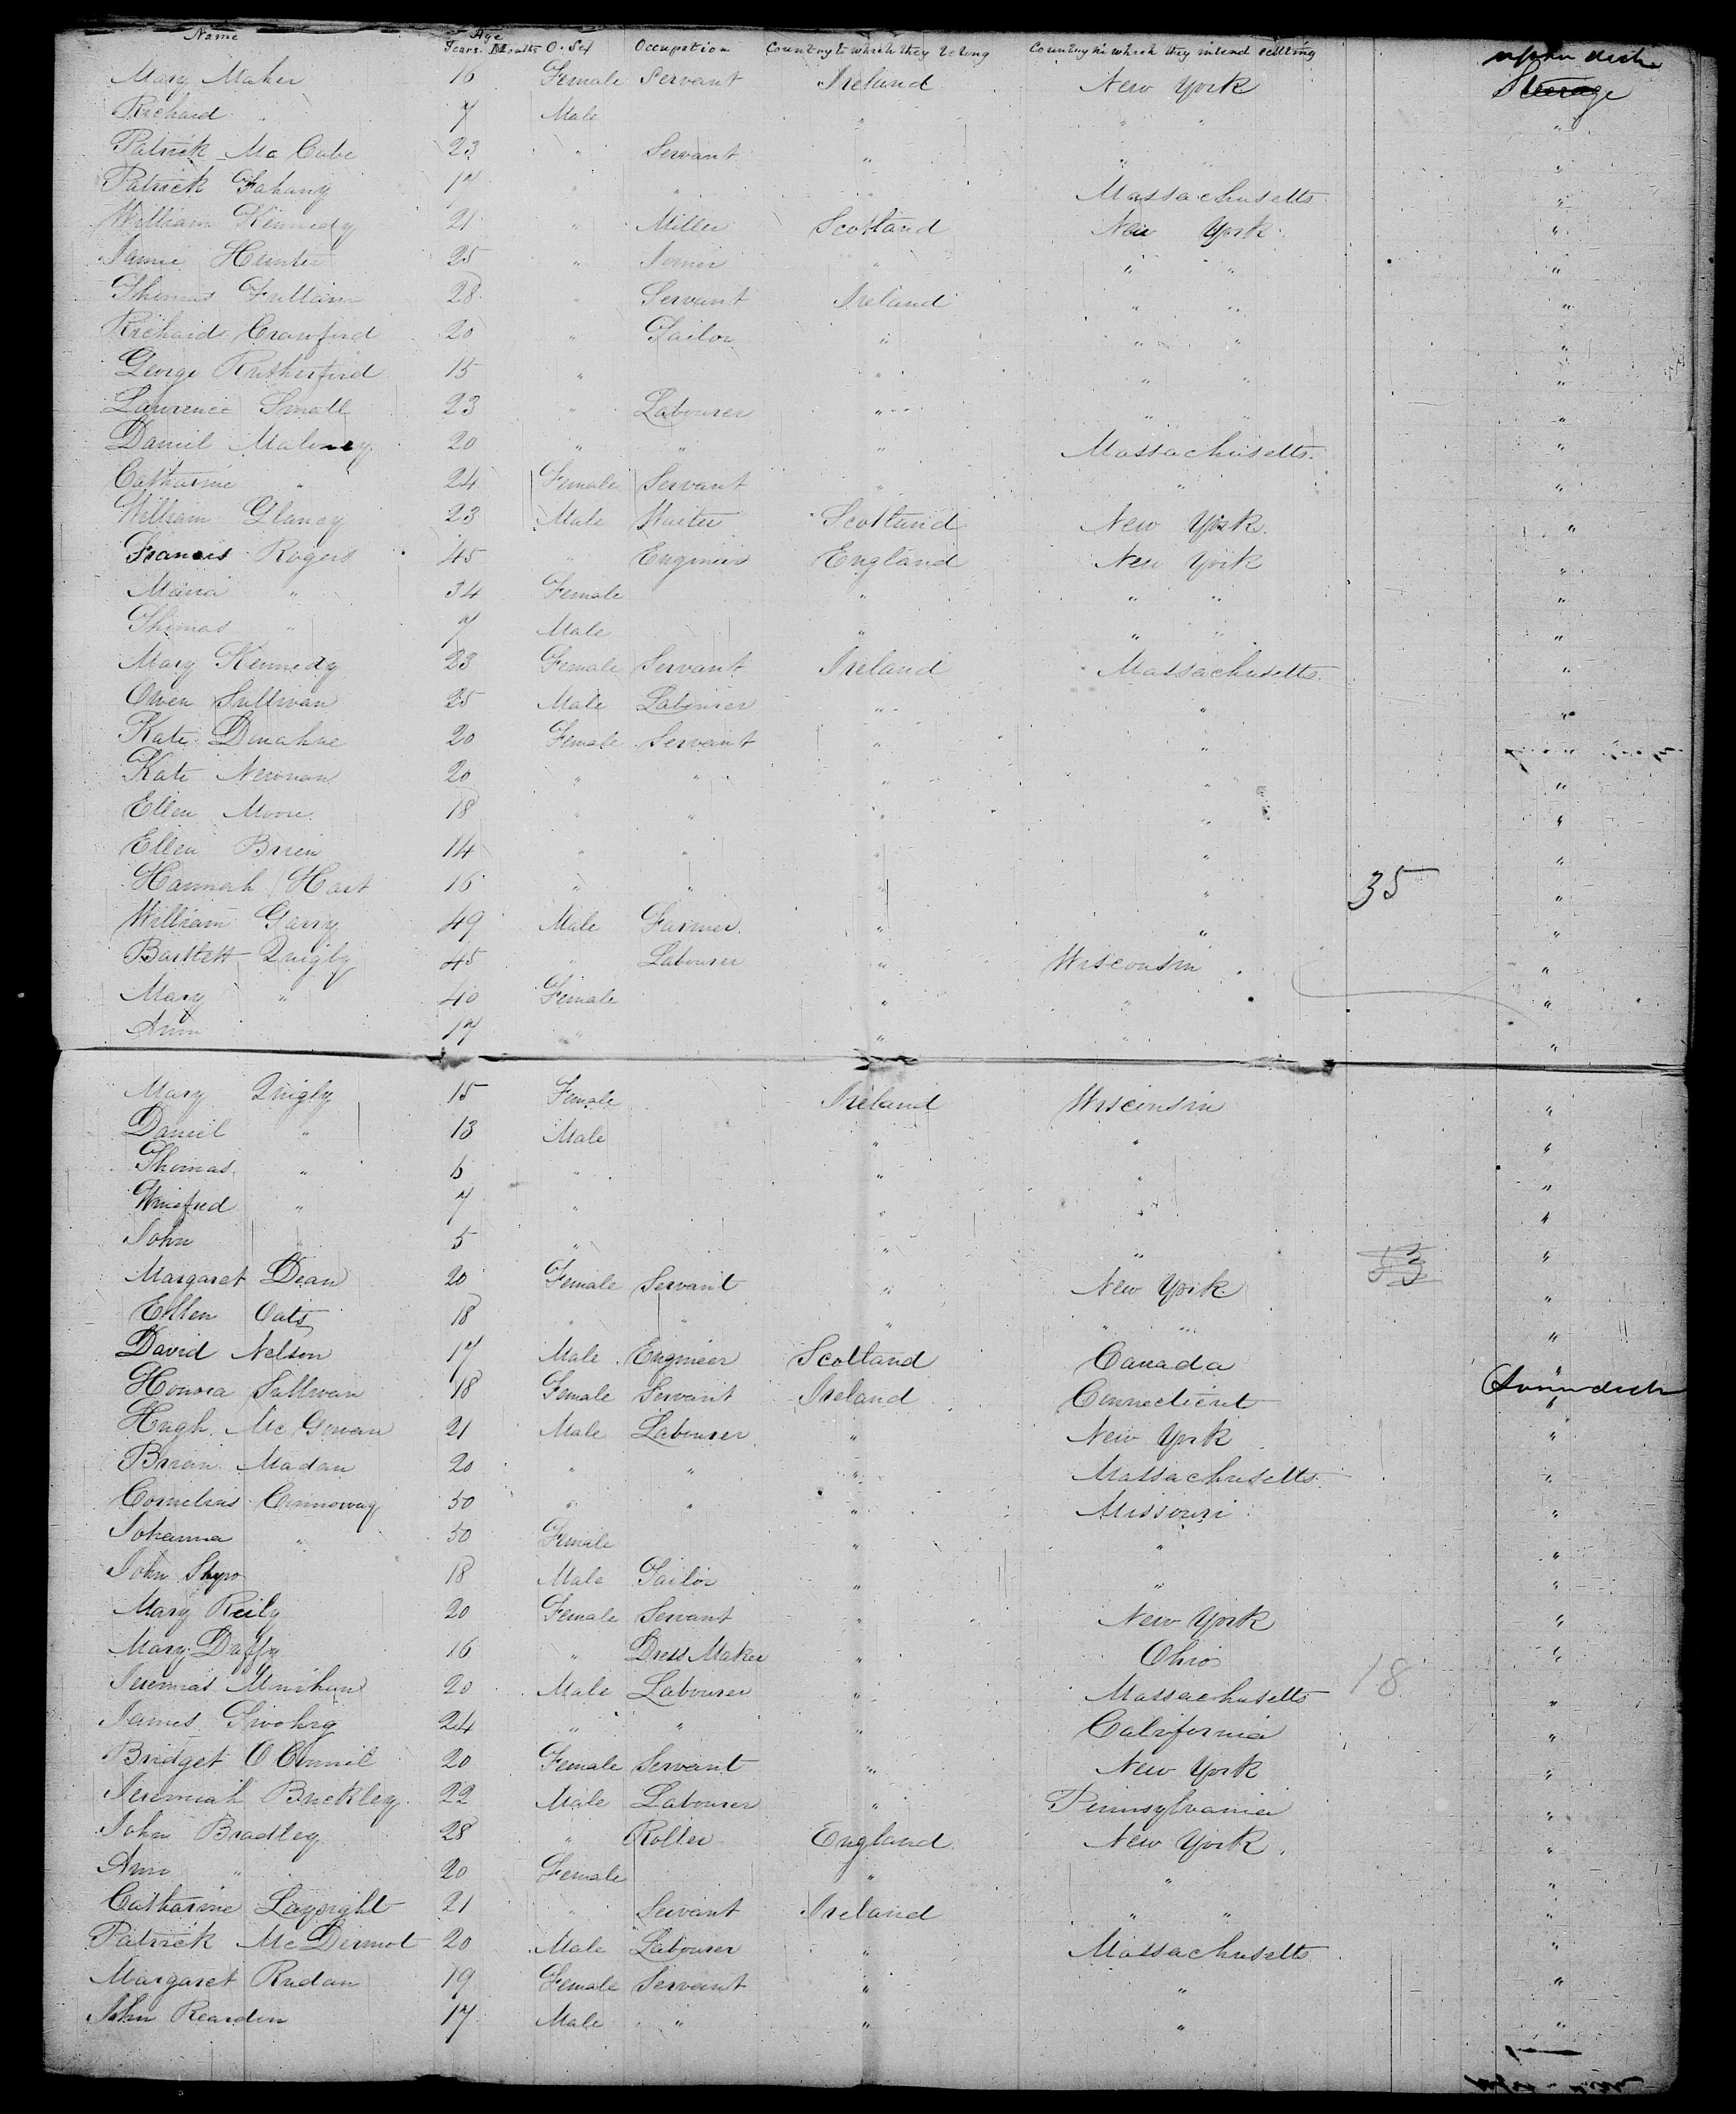 Name Age Years Months O. Sex Occupation Country to which they belong Country in which they intend settling upper deck
Mary Maher 16 Female Servant Ireland New York Steerage
Richard " 7 Male " " " "
Patrick Mc Cabe 23 " Servant " " " "
Patrick Fahany 17 " " " Massachusetts "
William Kennedy 21 " Miller Scotland New York "
James Hunter 25 " Joiner " " " "
Thomas Fullam 28 " Servant Ireland " " "
Richard Crawford 20 " Tailor " " " "
George Rutherford 15 " " " " "
Lawrence Small 23 " Labourer " " " "
Daniel Maloney 20 " " " Massachusetts "
Catharine " 24 Female Servant " " "
William Glancy 23 Male Waiter Scotland New York "
Francis Rogers 45 " Engineer England New York "
Maria " 34 Female " " " "
Thomas " 7 Male " " " "
Mary Kennedy 23 Female Servant Ireland Massachusetts "
Owen Sullivan 25 Male Labourer " " "
Kate Donahue 20 Female Servant " "
Kate Newnan 20 " " " " "
Ellen Moore 18 " " " " "
Ellen Brien 14 " " " " "
Hannorh Hart 16 " " " " 35 "
William Garry 49 Male Farmer " " "
Bartlett Quigly 45 " Labourer " Wisconsin "
Mary " 40 Female " " "
Ann 17 " " " "
Mary Quigly 15 Female Ireland Wisconsin "
Daniel " 13 Male " " "
Thomas " 6 " " " "
Winefred " 7 " " " "
John " 5 " " " "
Margaret Dean 20 Female Servant " New York 53 "
Ellen Oats 18 " " " " " "
David Nelson 17 Male Engineer Scotland Canada "
Honora Sullivan 18 Female Servant Ireland Connecticut Lower deck
Hugh Mc Gowan 21 Male Labourer " New York "
Brian Madan 20 " " " Massachusetts "
Cornelius Connoway 50 " " " Missouri "
Johanna " 50 Female " " "
John 18 Male Tailor " " "
Mary Reily 20 Female Servant " New York "
Mary Daffy 16 " Dress Maker " Ohio "
Jeremias Minihan 20 Male Labourer " Massachusetts 18 "
James 24 " " " California "
Bridget O Connil 20 Female Servant " New York "
Jeremiah Buckley 22 Male Labourer " Pennsylvania "
John Bradley 28 " Roller England New York "
Ann " 20 Female " " "
Catharine 21 " Servant Ireland " " "
Patrick McDermot 20 Male Labourer " Massachusetts "
Margaret Rudan 19 Female Servant " " "
John Rearden 17 Male " " " "